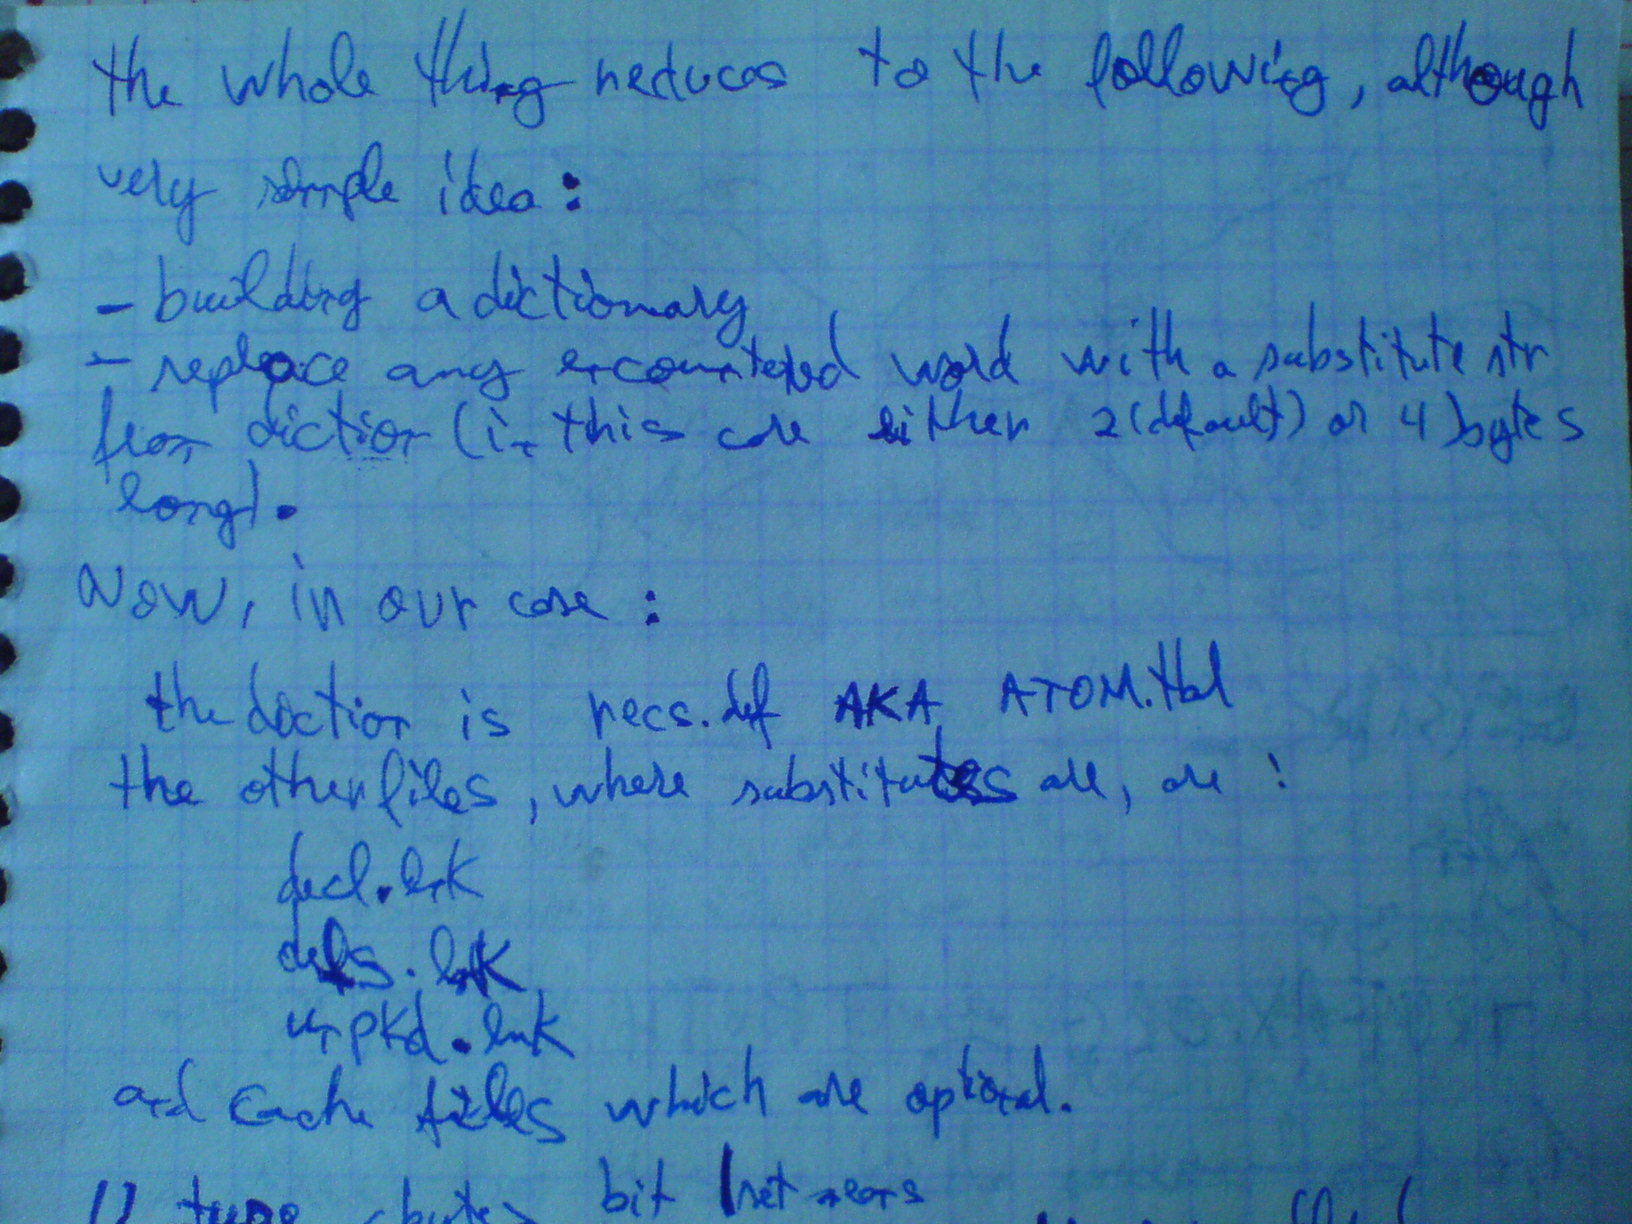 the whole thing reduces to the following, although
very simple idea:
- building a dictionary
- replace any encountered word with a substitute str
from diction (in this case either 2 (default) or 4 bytes
long).
Now, in our case:
the diction is recs.def AKA ATOM.tbl
the other files, where substitutes are, are:
decl.lnk
defs.lnk
unpkd.lnk
and cache files which are optional.
type <byte> bit